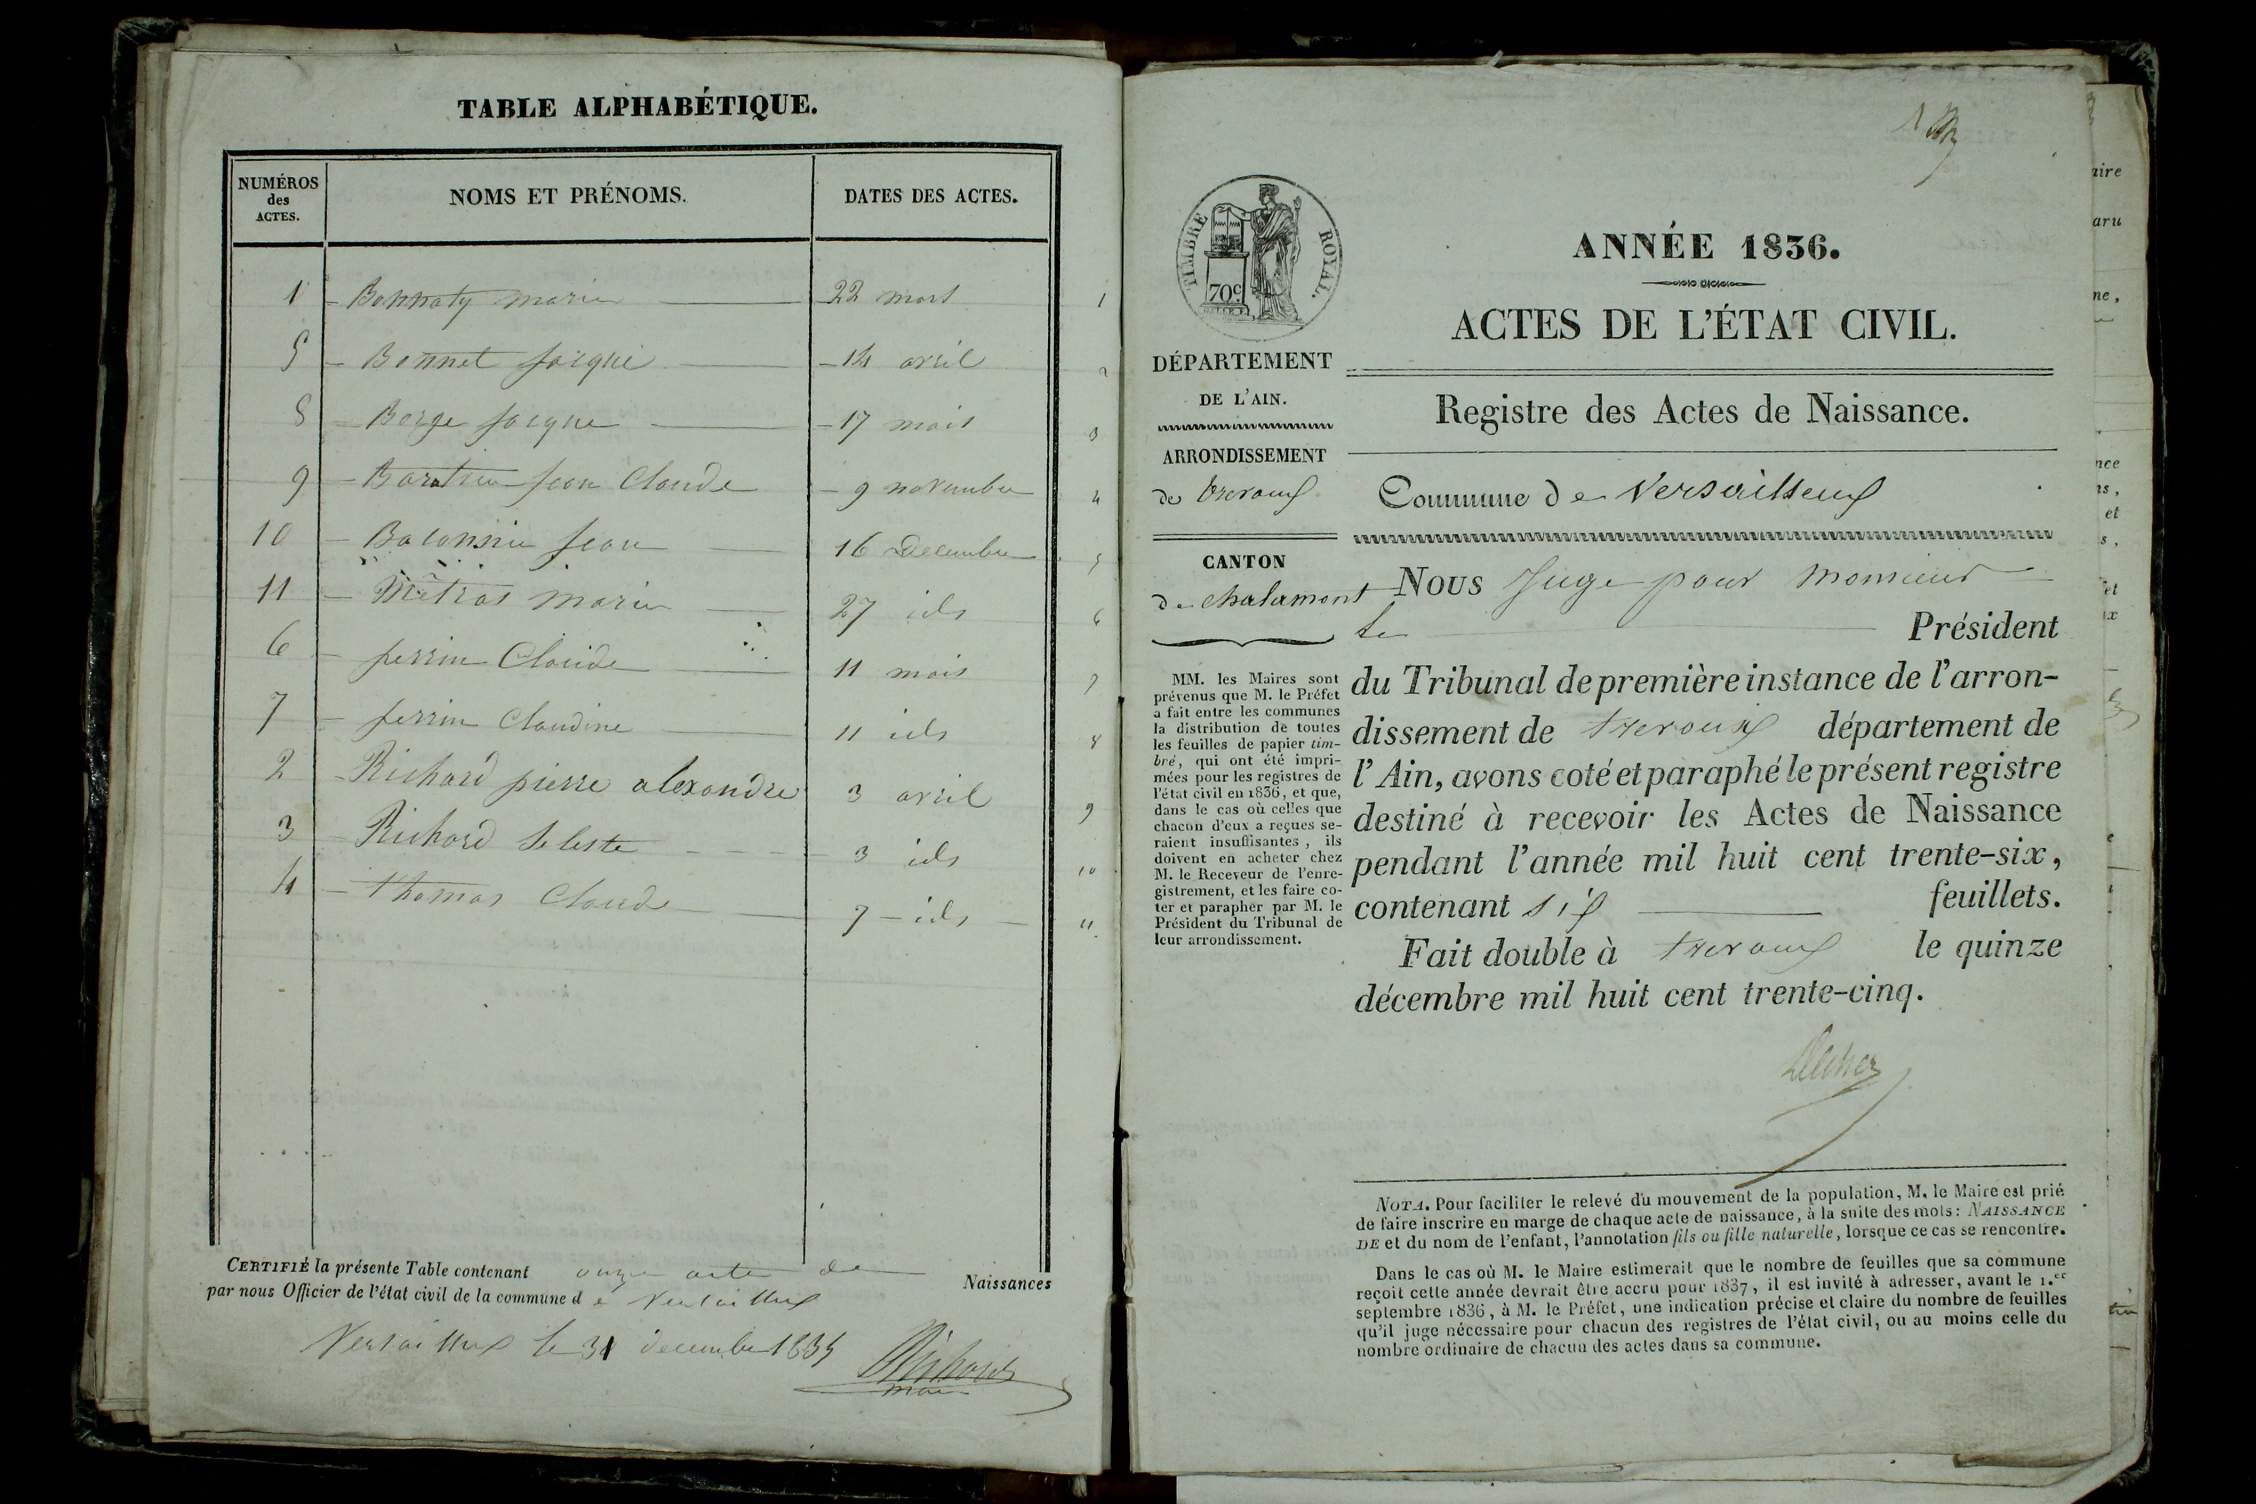 TABLE ALPHABÉTIQUE.
NUMÉROS
des
ACTES.
NOMS ET PRÉNOMS.
DATES DES ACTES.
1 - Bonnaty marie 22 mars 1
5 - Bonnet jacque - 14 avril 2
8 - Berge jacque - 17 mais 3
9 - jean Claude - 9 novembre 4
10 - jean 16 Decembre 5
11 - Métras marie 27 ids 6
6 - perrin Claude 11 mais 7
7 - perrin Claudine 11 ids 8
2 - Richard pierre alexandre 3 avril 9
3 - Richard Seleste 3 ids 10
4 - thomas Claude 7 - ids - 11
CERTIFIÉ la présente Table contenant onze acte de Naissances
par nous Officier de l'état civil de la commune d e Versailleux
Versailleux le 31 decembre 1835
Richard
maire
1
TIMBRE ROYAL.
70c
DÉPARTEMENT
DE L'AIN.
ARRONDISSEMENT
de trevoux
CANTON
de chalamont
MM. les Maires sont
prévenus que M. le Préfet
a fait entre les communes
la distribution de toutes
les feuilles de papier tim-
bré, qui ont été impri-
mées pour les registres de
l'état civil en 1836, et que,
dans le cas où celles que
chacun d'eux a reçues se-
raient insuffisantes, ils
doivent en acheter chez
M. le Receveur de l'enre-
gistrement, et les faire co-
ter et parapher par M. le
Président du Tribunal de
leur arrondissement.
ANNÉE 1836.
ACTES DE L'ÉTAT CIVIL.
Registre des Actes de Naissance.
Commune de Versailleux
NOUS Juge pour monsieur
le Président
du Tribunal de première instance de l'arron-
dissement de trevoux département de
l'Ain, avons coté et paraphé le présent registre
destiné à recevoir les Actes de Naissance
pendant l'année mil huit cent trente-six,
contenant six feuillets.
Fait double à trevoux le quinze
décembre mil huit cent trente-cinq.
NOTA. Pour faciliter le relevé du mouvement de la population, M. le Maire est prié
de faire inscrire en marge de chaque acte de naissance, à la suite des mots: NAISSANCE
DE et du nom de l'enfant, l'annotation fils ou fille naturelle, lorsque ce cas se rencontre.
Dans le cas où M. le Maire estimerait que le nombre de feuilles que sa commune
reçoit cette année devrait être accru pour 1837, il est invité à adresser, avant le 1.er
septembre 1836, à M. le Préfet, une indication précise et claire du nombre de feuilles
qu'il juge nécessaire pour chacun des registres de l'état civil, ou au moins celle du
nombre ordinaire de chacun des actes dans sa commune.